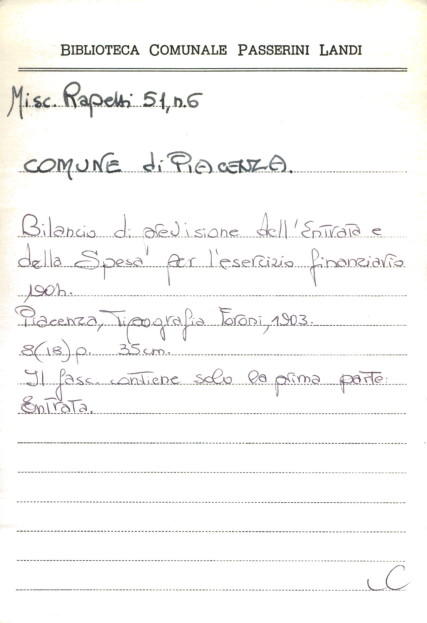 BIBLIOTECA COMUNALE PASSERINI LANDI
Misc. Rapetti 51, n. 6
COMUNE di PIACENZA.
Bilancio di previsione dell'Entrata e
della Spesa per l'esercizio finanziario
1904.
Piacenza, Tipografia Foroni, 1903.
8(18) p. 35 cm.
Il fasc. contiene solo la prima parte:
Entrata.